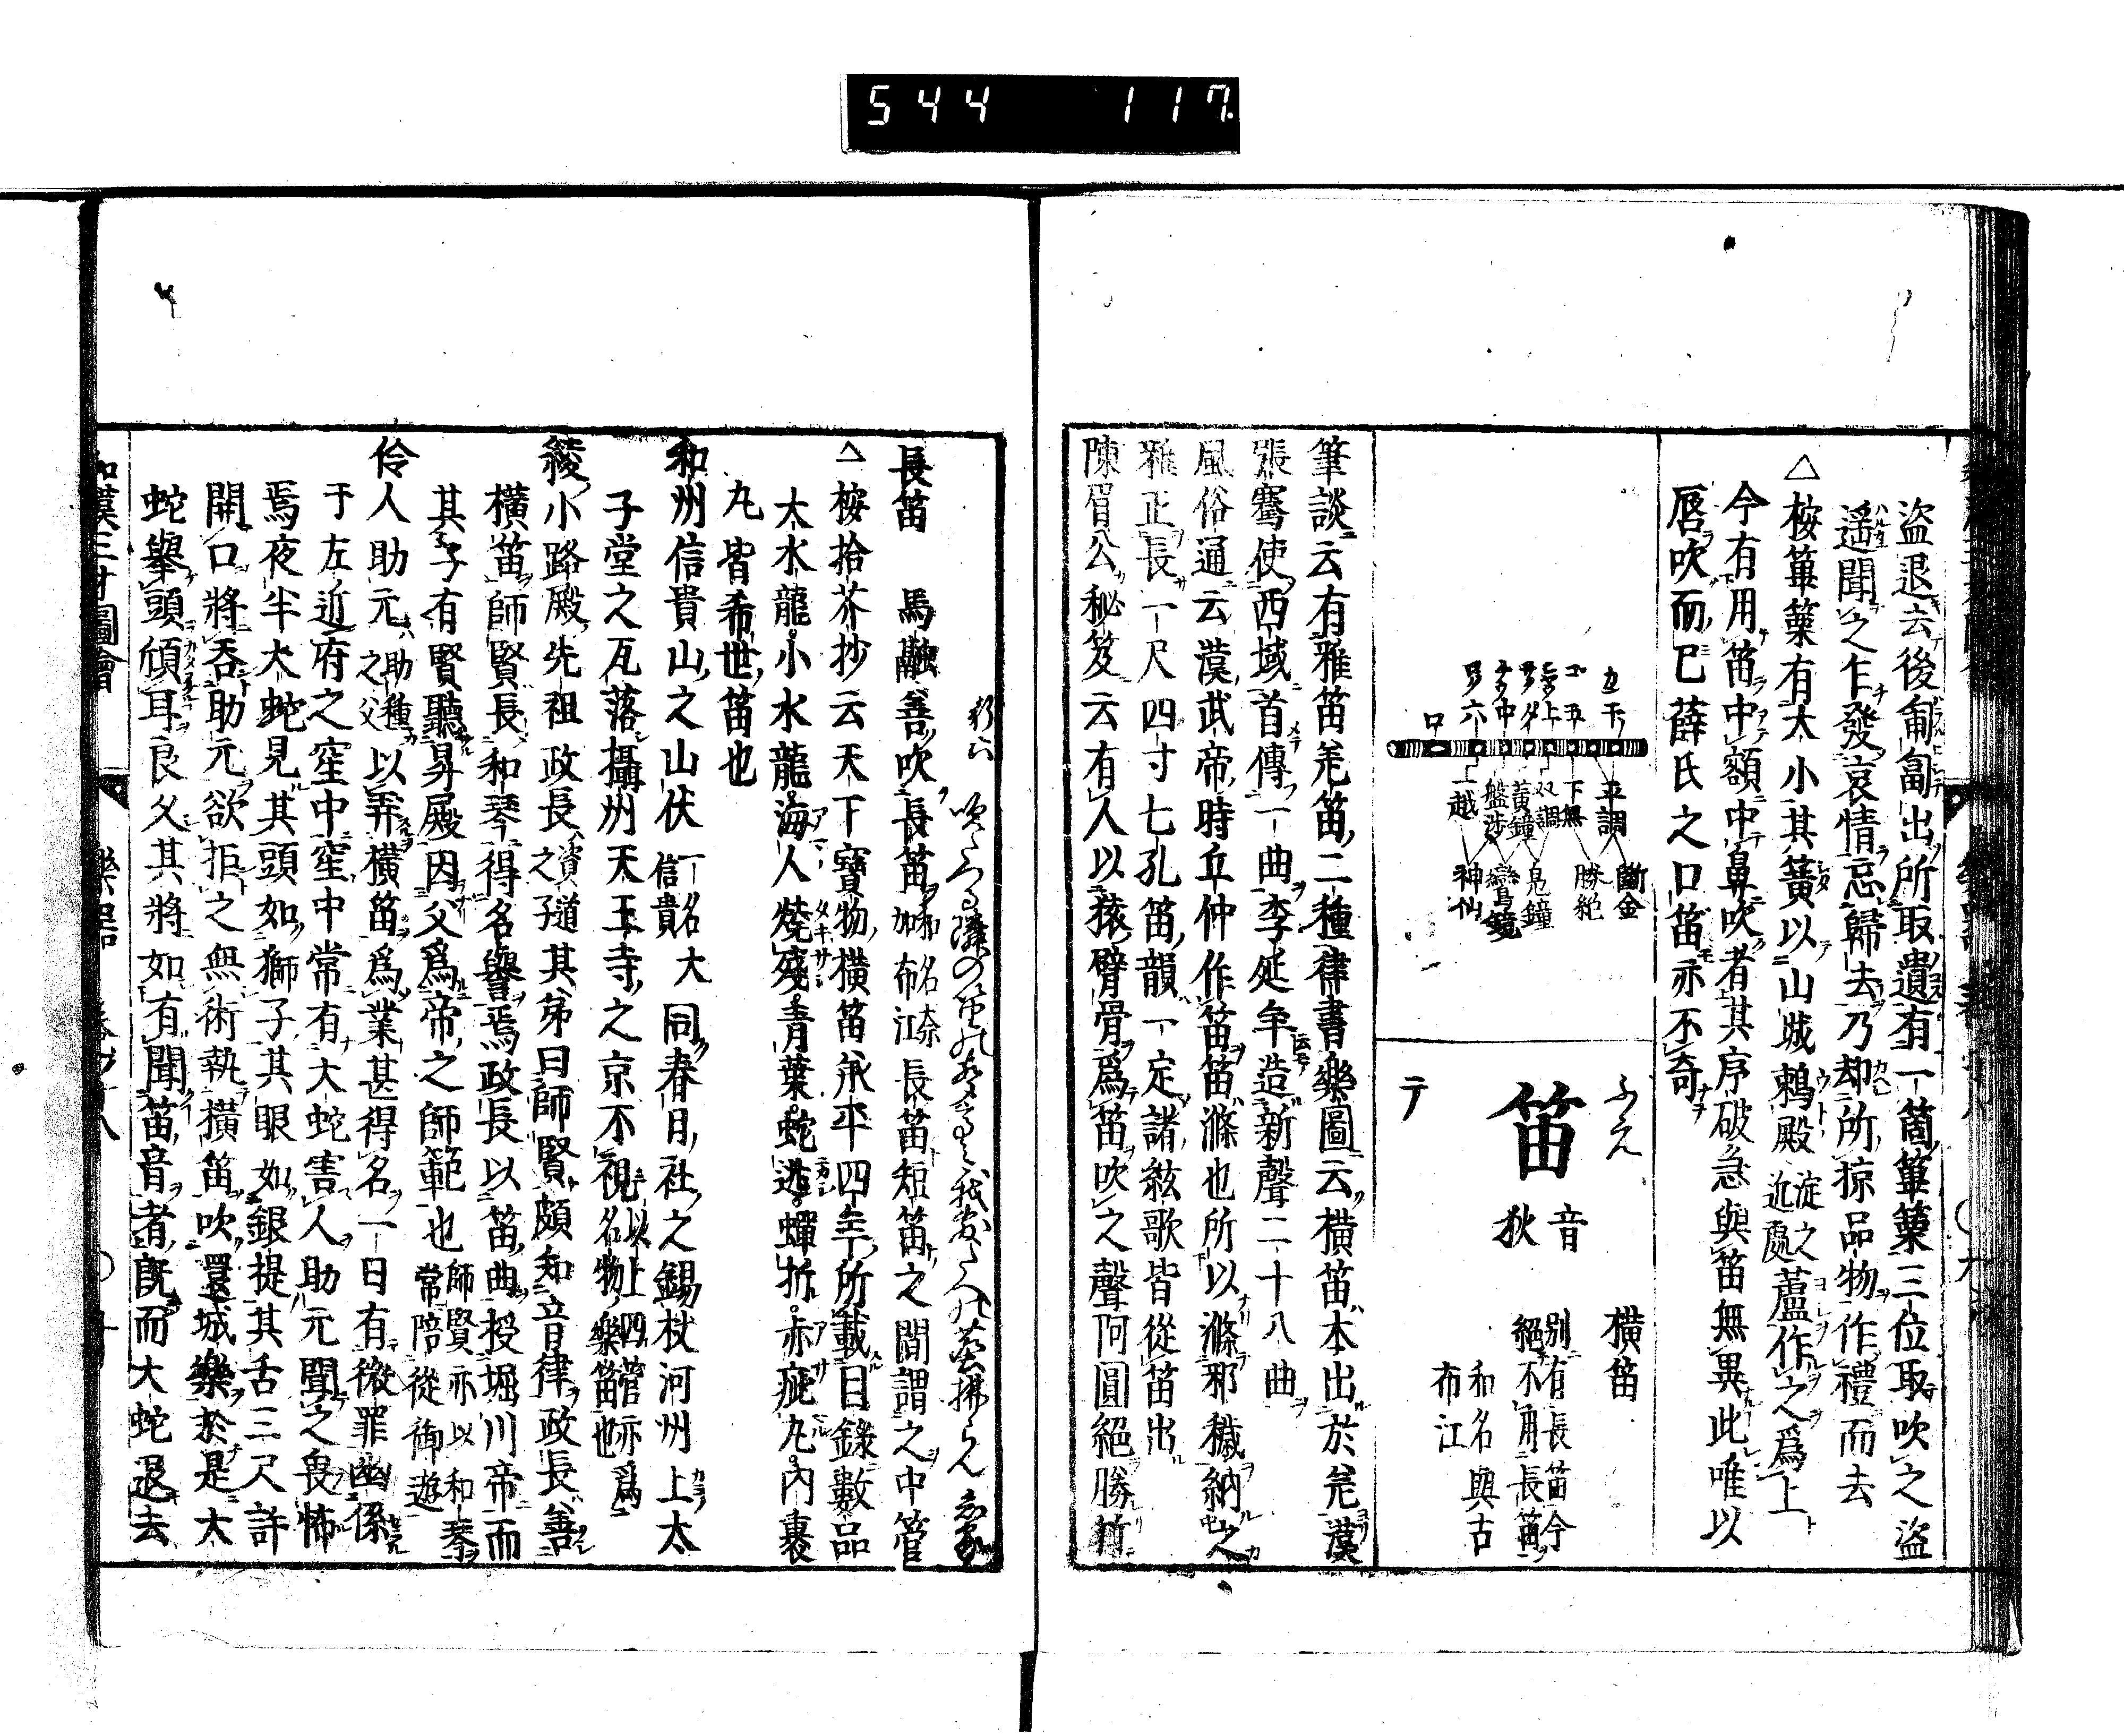 544 117
盜退去後匍匐出所取遺有一箇篳篥三位取吹之盜
遥聞之乍發哀情忘歸去乃却所掠品物作禮而去
△桉篳篥有大小其簧以山城鵜殿淀之近處蘆作之爲上
今有用笛中額中鼻吹者其序破急與笛無異此唯以
唇吹而已薛氏之口笛亦不奇
笛
ふえ
音狄
テ
横笛
別有長笛今
絕不用長笛
和名與古
布江
干 五 上 夕 中 六 口
平調 下無 双調 黃鐘 盤渉 一越
斷金 勝絶 鳧鐘 鸞鏡 神仙
筆談云有雅笛羌笛二種律書樂圖云横笛本出於羌漢
張騫使西域首傳一曲李延年造新聲二十八曲
風俗通云漢武帝時丘仲作笛笛滌也所以滌邪穢納之
雅正長一尺四寸七孔笛韻一定諸絃歌皆從笛出
陳眉公秘笈云有人以猿臂骨爲笛吹之聲阿圓絕勝竹
長笛 馬融善吹長笛和名奈加布江長笛短笛之間謂之中管
△桉拾芥抄云天下寶物横笛承平四年所載目錄數品
大水龍小水龍海人燒殘青葉蛇逃蟬折赤疵丸內裏
丸皆希世笛也
和州信貴山之山伏一名信貴大同春日社之錫杖河州上太
子堂之瓦落攝州天王寺之京不視以上四管亦爲名物樂笛也
綾小路殿先祖政長資道之子其弟曰師賢頗知音律政長善
横笛師賢長和琴得名譽焉政長以笛曲授堀川帝而
其子有賢聽昇殿因父爲帝之師範也師賢亦以和琴常陪從御遊
伶人助元助種之父以弄横笛爲業甚得名一日有微罪幽係
于左近府之窒中窒中常有大蛇害人助元聞之畏怖
焉夜半大蛇見其頭如獅子其眼如銀提其舌三尺許
開口將呑助元欲拒之無術執横笛吹還城樂於是大
蛇擧頭頎耳良久其將如有聞笛音者既而大蛇退去
和漢三才圖會